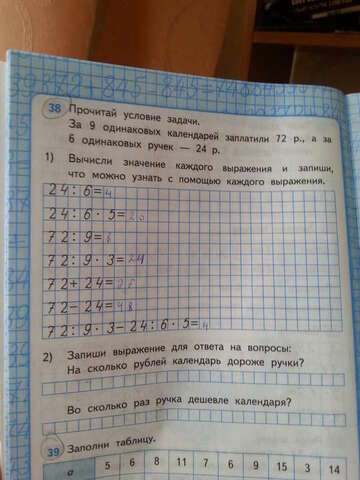 38 Прочитай условие задачи.
За 9 одинаковых календарей заплатили 72 р., а за
6 одинаковых ручек — 24 р.
1) Вычисли значение каждого выражения и запиши,
что можно узнать с помощью каждого выражения.
24:6=4
24:6·5=20
72:9=8
72:9·3=24
72+24=
72-24=48
72:9·3-24:6·5=4
2) Запиши выражение для ответа на вопросы:
На сколько рублей календарь дороже ручки?
Во сколько раз ручка дешевле календаря?
39 Заполни таблицу.
a 5 6 8 11 7 6 9 15 3 14